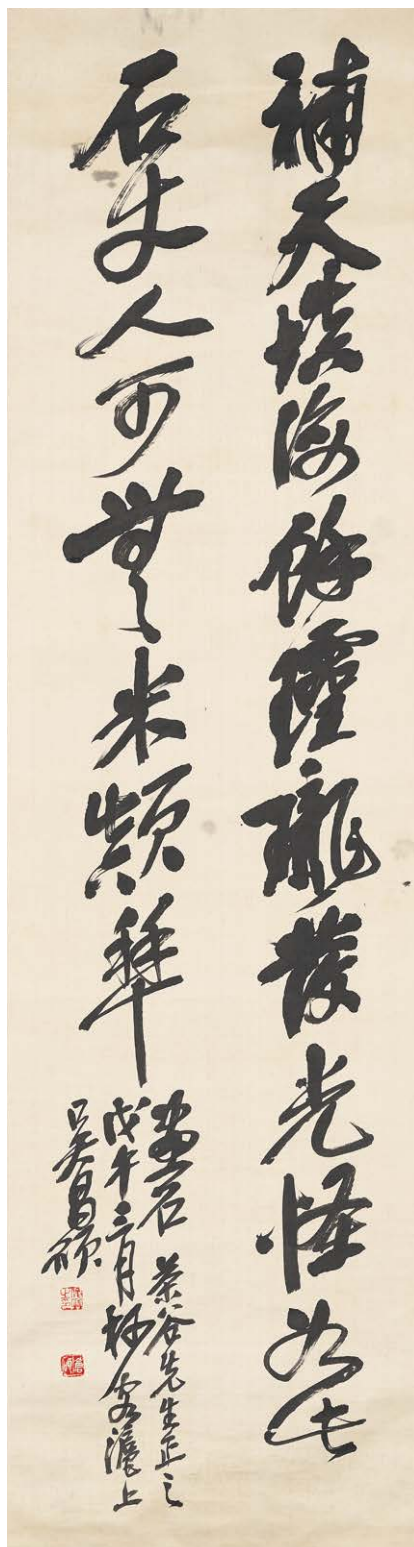 補天填海餘靈瓏發光怪如此
石丈人可無米顛拜
畫石 茶谷先生正之
戊午三月杪客滬上
吳昌碩